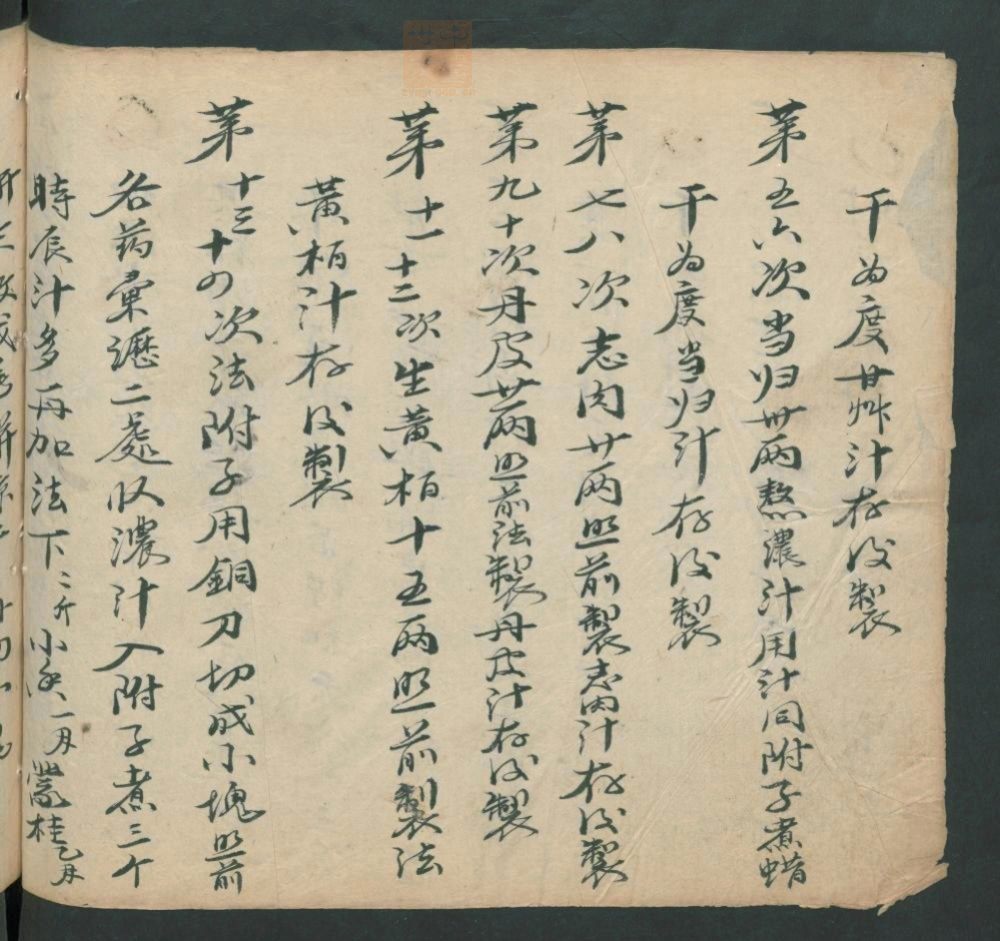 干为度甘艸汁存後製
第五六次当归卅两熬濃汁用汁同附子煮蜡
干为度当归汁存後製
第七八次志肉廿两照前製志肉汁存後製
第九十次丹皮廿两照前法製丹皮汁存後製
第十一十二次生黄柏十五两照前製法
黄柏汁存後製
第十三十四次法附子用銅刀切成小塊照前
各药彙瀝二處収濃汁入附子煮三个
時辰汁多再加法下二斤小 一月 桂